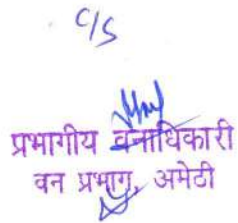 C/S
प्रभागीय वनाधिकारी
वन प्रभाग, अमेठी